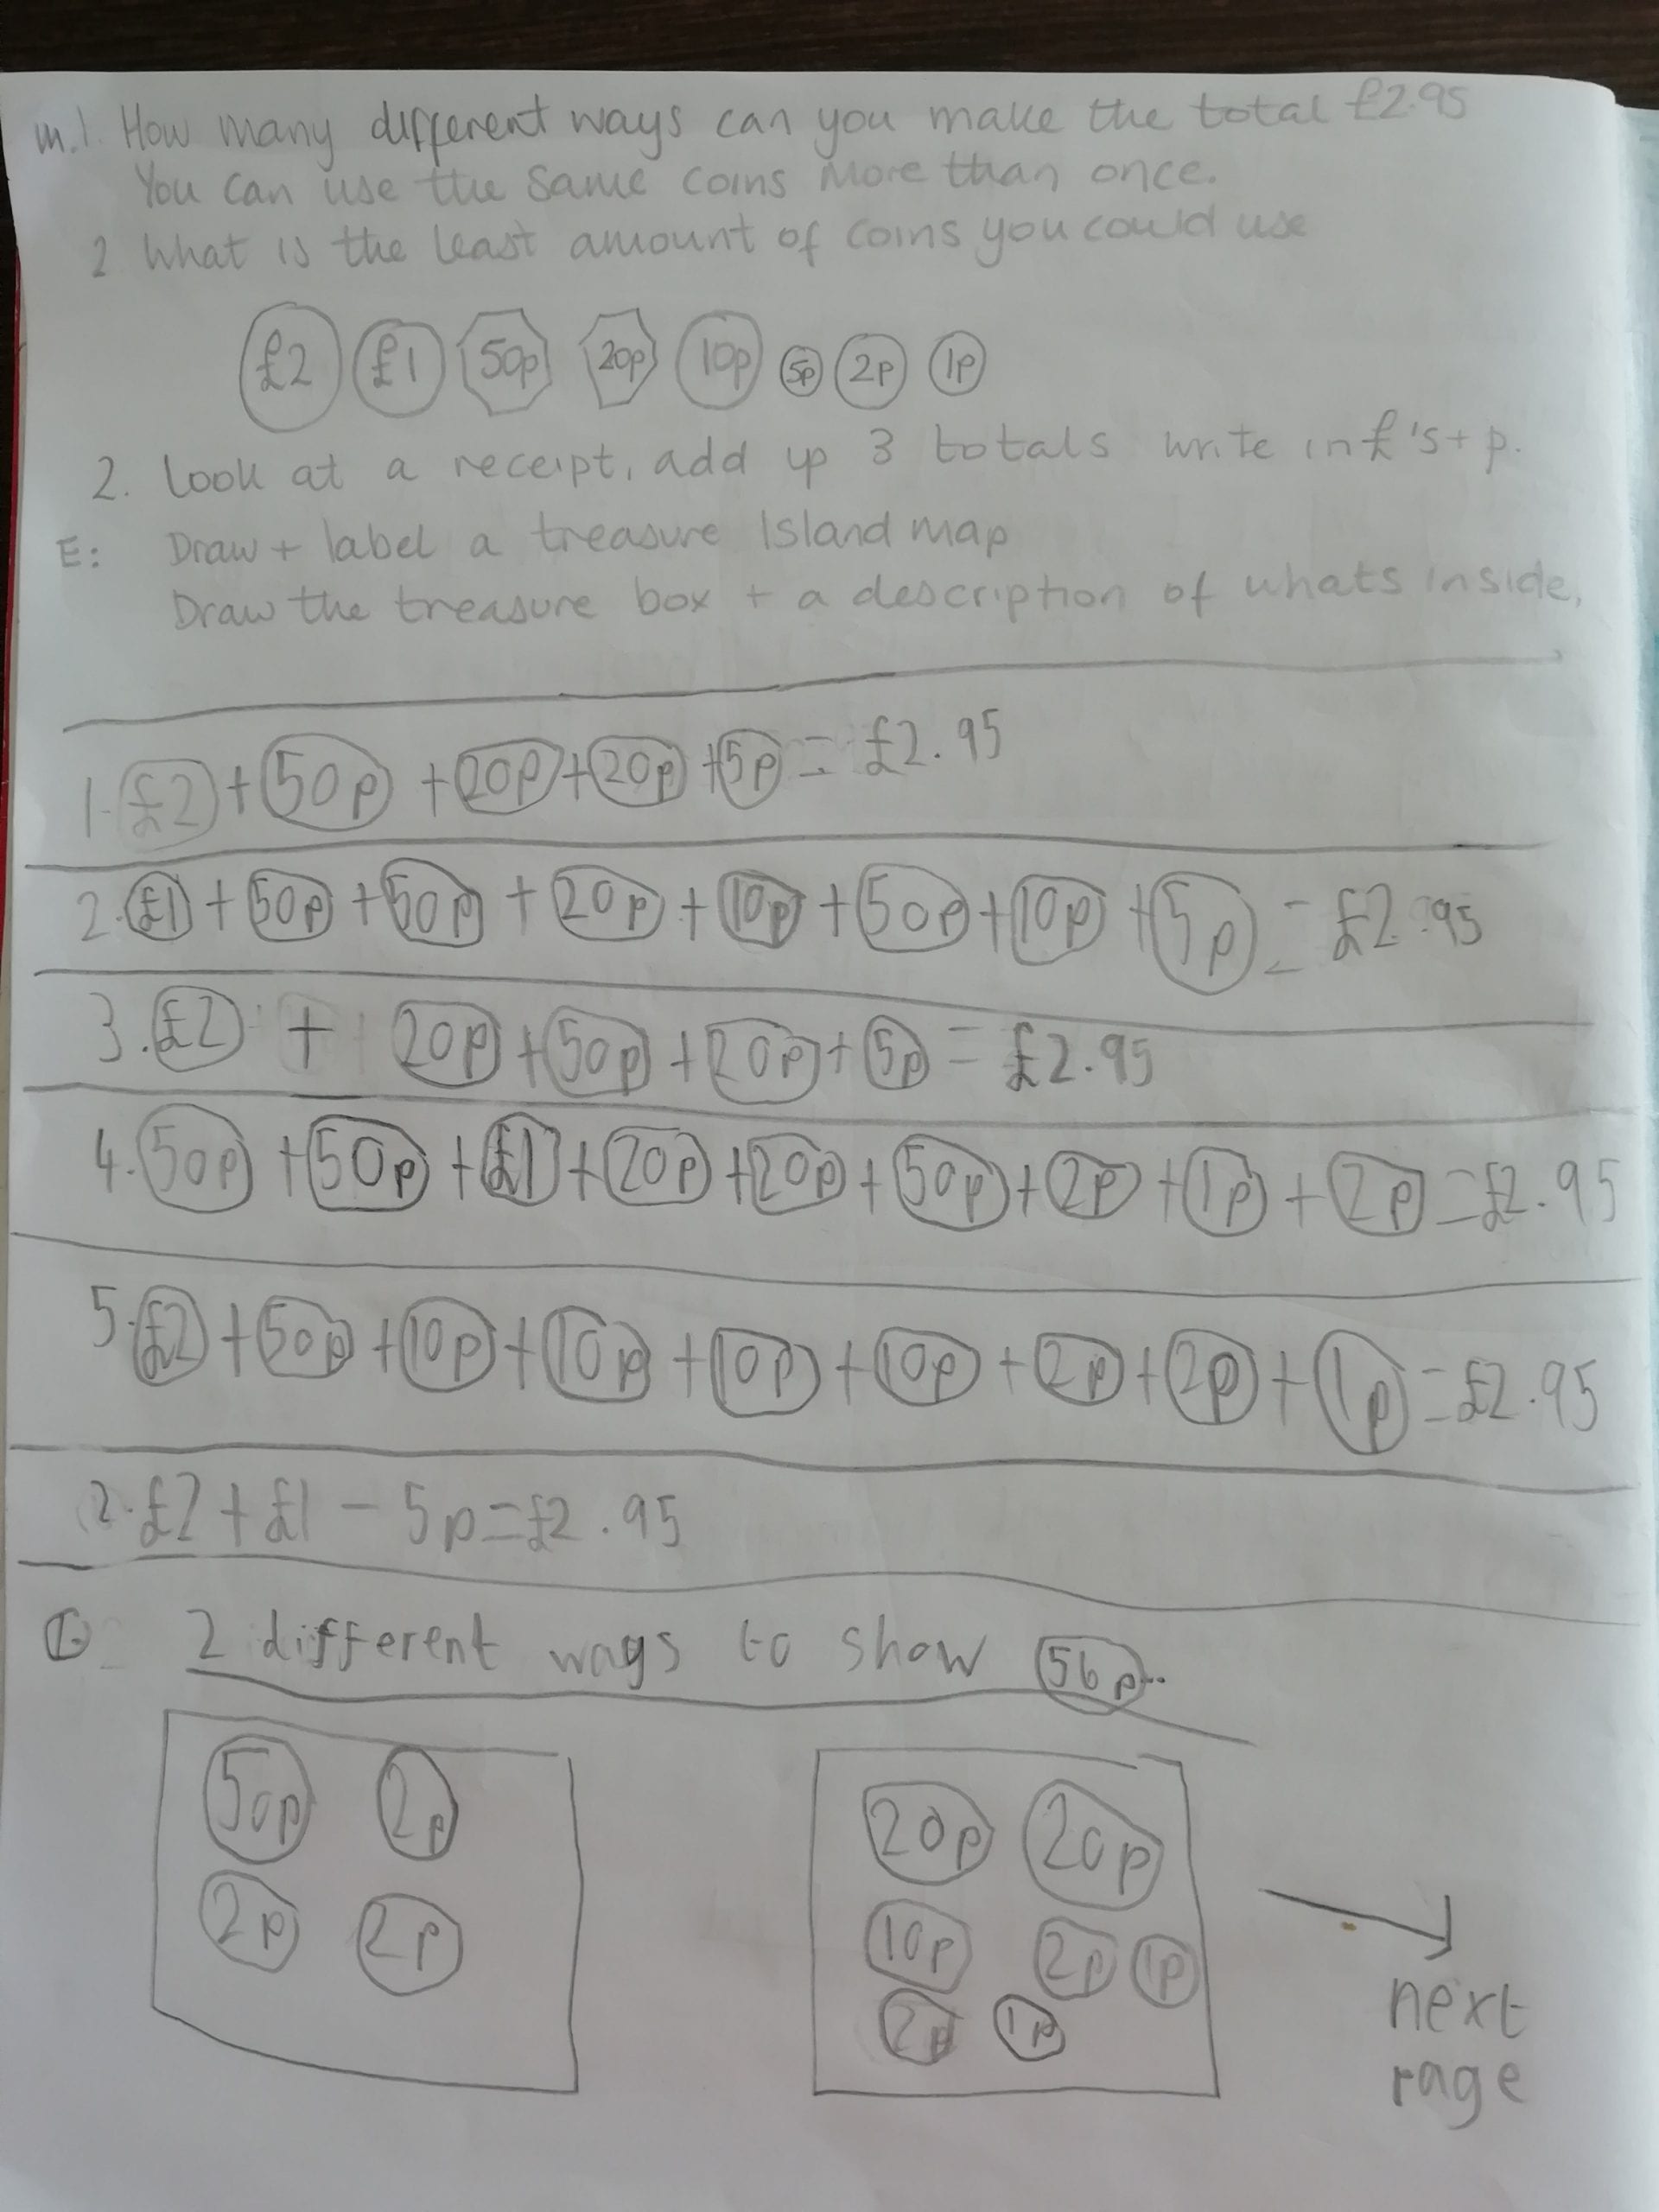 m.1. How many different ways can you make the total £2.95
You can use the same coins more than once.
2 What is the least amount of coins you could use
£2 £1 50p 20p 10p 5p 2p 1p
2. Look at a receipt, add up 3 totals write in £'s + p.
E: Draw + label a treasure Island map
Draw the treasure box + a description of whats inside,
1. £2 + 50p + 20p + 20p + 5p = £2.95
2. £1 + 50p + 50p + 20p + 10p + 50p + 10p + 5p = £2.95
3. £2 + 20p + 50p + 20p + 5p = £2.95
4. 50p + 50p + £1 + 20p + 20p + 50p + 2p + 1p + 2p = £2.95
5. £2 + 50p + 10p + 10p + 10p + 10p + 2p + 2p + 1p = £2.95
2. £2 + £1 - 5p = £2.95
2 different ways to show 56p..
50p 2p
2p 2p
20p 20p
10p 2p 1p
2p 1p
next
rage